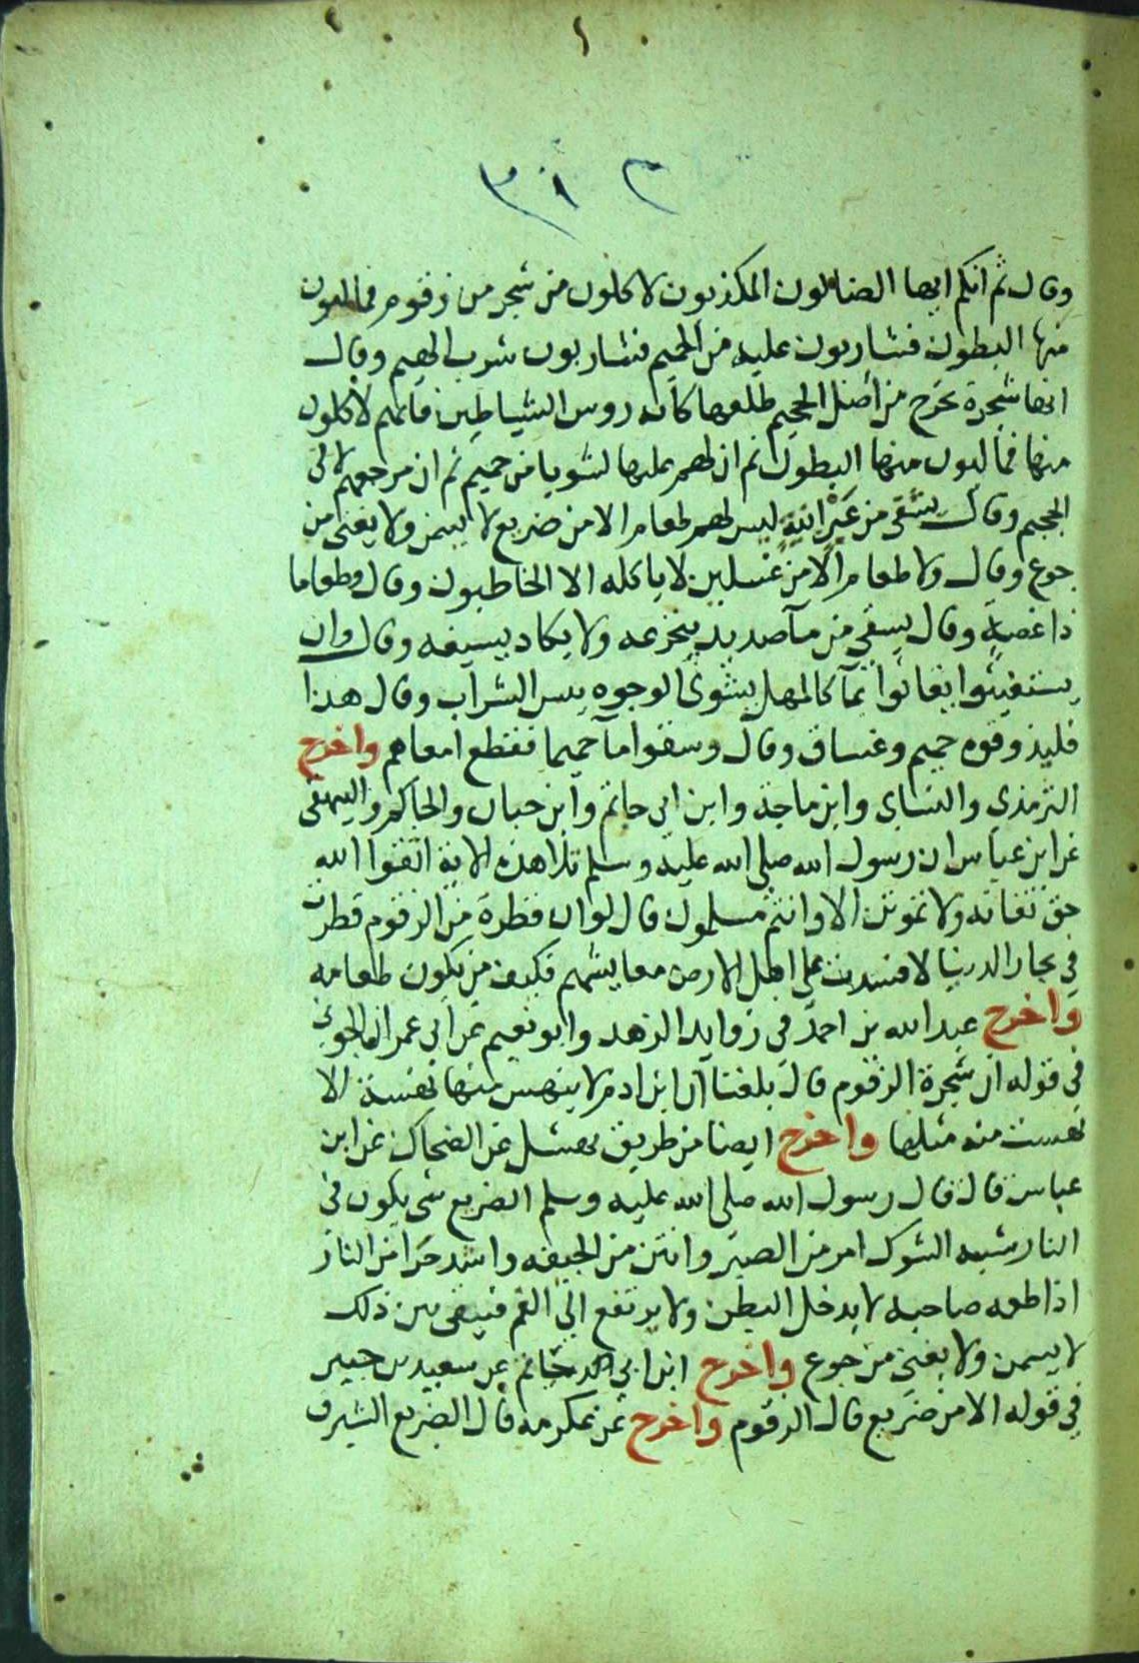 ٣٠٢
وقال ثم انكم ايها الضالون المكذبون لاكلون من شجر من زقوم فمالئون
منها البطون فشاربون عليه من الحميم فشاربون شرب الهيم وقال
انها شجرة تخرج من اصل الجحيم طلعها كانه روس الشياطين فانهم لاكلون
منها فمالئون منها البطون ثم ان لهم عليها لشوبا من حميم ثم ان مرجعهم لالى
الجحيم وقال تسقى من عَيْنٍ انيةٍ ليس لهم طعام الا من ضريع لا يسمن ولا يغنى من
جوع وقال ولا طعام الا من غسلين لا ياكله الا الخاطيون وقال وطعاما
ذا غصةٍ وقال يسقى من مآصديد يتجرعه ولا يكاد يسيغه وقال وان
يستغيثوا يغاثوا بمآ كالمهل يشوى الوجوه بيس الشراب وقال هذا
فليذوقوه حميم وغساق وقال وسقوا مآ حميما فقطع امعاهم واخرج
الترمذى والنساى وابن ماجة وابن ابى حاتم وابن حبان والحاكم والبيهقى
عن ابن عباس ان رسول الله صلى الله عليه وسلم تلا هذه الاية اتقوا الله
حق تقاته ولا تموتن الا وانتم مسلمون قال لو ان قطرة من الزقوم قطرت
في بحار الدنيا لافسدت على اهل الارض معايشهم فكيف من يكون طعامه
واخرج عبد الله بن احمد فى زوايد الزهد وابو نعيم عن ابى عمران الجونى
في قوله ان شجرة الزقوم قال بلغنا ان ابن ادم لا ينهس منها نهسة الا
نهست منه مثلها واخرج ايضا من طريق نهشل عن الضحاك عن ابن
عباس قال قال رسول الله صلى الله عليه وسلم الضريع شى يكون فى
النار شبه الشوك امر من الصبر وانتن من الجيفه واشد حرا من النار
اذا طعمه صاحبه لا يدخل البطن ولا يرتفع الى الفم فيبقى بين ذلك
لا يسمن ولا يغنى من جوع واخرج ابن ابى حاتم عن سعيد بن جبير
في قوله الا من ضريع قال الزقوم واخرج عن عكرمه قال الضريع الشبرق